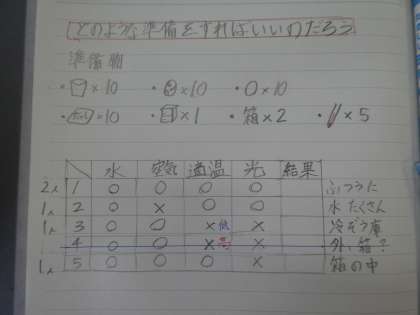 どのような準備をすればいいのだろう
準備物
・ ×10 ・ ×10 ・ ×10
・ ×10 ・ ×1 ・箱×2 ・ ×5
水 空気 適温 光 結果
2人 1 ○ ○ ○ ○ ふつうに
1人 2 ○ × ○ ○ 水たくさん
1人 3 ○ ○ ×低 × 冷ぞう庫
4 ○ ○ × × 外、箱?
1人 5 ○ ○ ○ × 箱の中